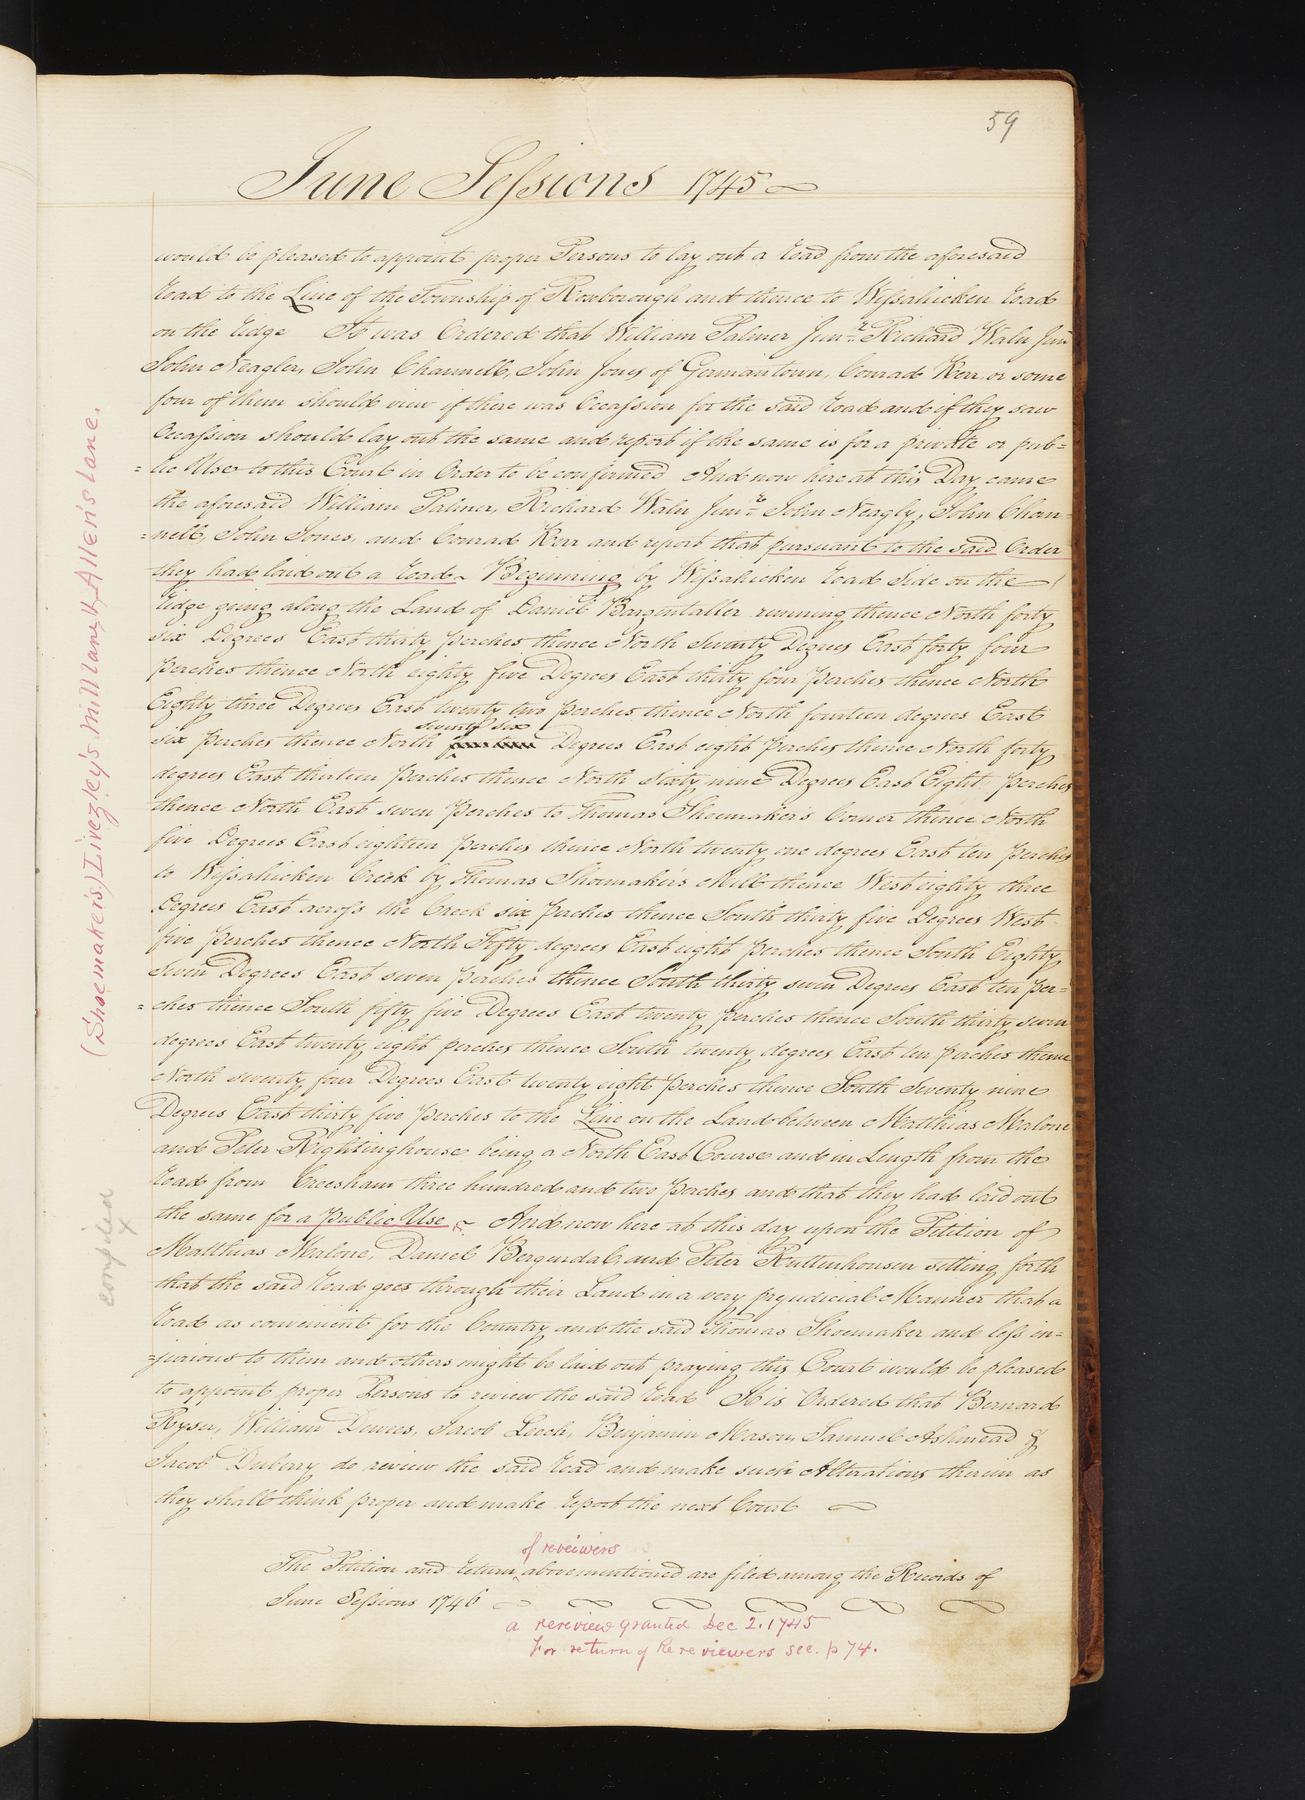 59
June Sessions 1745
would be pleased to appoint proper Persons to lay out a Road from the aforesaid
Road to the Line of the Township of Roxborough and thence to Wissahicken Road
on the Ridge It was Ordered that William Palmer Junr Richard Waln Jun
John Neagler, John Channell, John Jones of Germantown, Conrad Kerr or some
four of them should view if there was Occassion for the said Road and if they saw
Occassion should lay out the same and report if the same is for a private or pub=
=lic Use to this Court in Order to be confirmed And now here at this Day came
the aforesaid William Palmer, Richard Waln Junr John Neagly, John Chan=
=nell, John Jones, and Conrad Kerr and report that pursuant to the said Order
they had laid out a Road Beginning by Wissahicken Road Side on the
Ridge going along the Land of Daniel running thence North forty
six Degrees East thirty perches thence North Seventy Degrees East forty four
perches thence North eighty five Degrees East thirty four perches thence North
Eighty three Degrees East twenty two perches thence North fourteen degrees East
seventy six
six perches thence North Degrees East eight perches thence North forty
degrees East thirteen perches thence North sixty nine Degrees East Eight perches
thence North East seven perches to Thomas Shoemaker's Corner thence North
five Degrees East eighteen perches thence North twenty one degrees East ten perches
to Wissahicken Creek by Thomas Shoemaker's Mill thence West eighty three
Degrees East across the Creek six perches thence South thirty five Degrees West
five perches thence North Fifty degrees East eight perches thence South Eighty
seven Degrees East seven perches thence South thirty seven Degrees East ten per=
=ches thence South fifty five Degrees East twenty perches thence South thirty seven
degrees East twenty eight perches thence South twenty degrees East ten perches thence
North seventy four Degrees East twenty eight perches thence South Seventy nine
Degrees East thirty five perches to the Line on the Land between Matthias Malone
and Peter Rightinghouse being a North East Course and in Length from the
Road from Creesham three hundred and two perches and that they had laid out
the same for a public Use And now here at this day upon the Petition of
Matthias Malone, Daniel Bergendal and Peter Ruttenhousen setting forth
that the said Road goes through their Land in a very prejudicial Manner that a
Road as convenient for the Country and the said Thomas Shoemaker and less in=
=jurious to them and others might be laid out praying this Court would be pleased
to appoint proper Persons to review the said Road It is Ordered that Bernard
Ryser, William Dewees, Jacob Leech, Benjamin Mason, Samuel Ashmead &
Jacob Dubery do review the said Road and make such Alterations therein as
they shall think proper and make report the next Court
of reveiwers
The Petition and return above mentioned are filed among the Records of
June Sessions 1746
a rereview granted Dec 2. 1745
For return of Re reviewers see. p 74.
(Shoemaker's) Livezley's Mill lane, & Allen's lane.
compiled
x